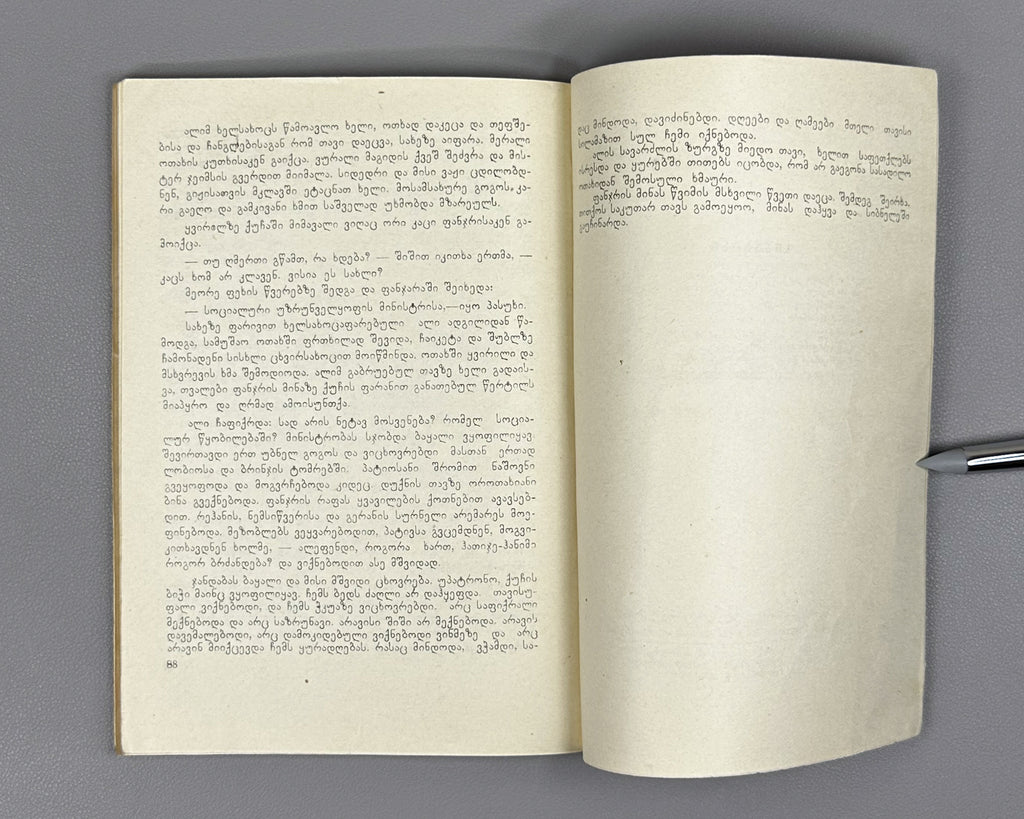 ალიმ ხელსახოცს წამოავლო ხელი, ოთხად დაკეცა და თეფშე-
ბისა და ჩანგლებისაგან რომ თავი დაეცვა, სახეზე აიფარა. მერალი
ოთახის კუთხისაკენ გაიქცა. ვურალი მაგიდის ქვეშ შეძვრა და მის-
ტერ ჯეიმსის გვერდით მიიმალა. სიდედრი და მისი ვაჟი ცდილობდ-
ნენ, გიჟისათვის მკლავში ეტაცნათ ხელი. მოსამსახურე გოგოს, კა-
რი გაეღო და გამკივანი ხმით საშველად უხმობდა მზარეულს.
ყვირილზე ქუჩაში მიმავალი ვიღაც ორი კაცი ფანჯრისაკენ გა-
მოიქცა.
— თუ ღმერთი გწამთ, რა ხდება? — შიშით იკითხა ერთმა, —
კაცს ხომ არ კლავენ. ვისია ეს სახლი?
მეორე ფეხის წვერებზე შედგა და ფანჯარაში შეიხედა:
— სოციალური უზრუნველყოფის მინისტრისა,—იყო პასუხი.
სახეზე ფარივით ხელსახოცაფარებული ალი ადგილიდან წა-
მოდგა, სამუშაო ოთახში ფრთხილად შევიდა, ჩაიკეტა და შუბლზე
ჩამონადენი სისხლი ცხვირსახოცით მოიწმინდა. ოთახში ყვირილი და
მსხვრევის ხმა შემოდიოდა. ალიმ გაბრუებულ თავზე ხელი გადაის-
ვა, თვალები ფანჯრის მინაზე ქუჩის ფარანით განათებულ წერტილს
მიაპყრო და ღრმად ამოისუნთქა.
ალი ჩაფიქრდა: სად არის ნეტავ მოსვენება? რომელ სოცია-
ლურ წყობილებაში? მინისტრობას სჯობდა ბაყალი ვყოფილიყავ.
შევირთავდი ერთ უბნელ გოგოს და ვიცხოვრებდი მასთან ერთად
ლობიოსა და ბრინჯის ტომრებში. პატიოსანი შრომით ნაშოვნი
გვეყოფოდა და მოგვრჩებოდა კიდეც. დუქნის თავზე ოროთახიანი
ბინა გვექნებოდა. ფანჯრის რაფას ყვავილების ქოთნებით ავავსებ-
დით. რეჰანის, ნემსიწვერისა და გერანის სურნელი არემარეს მოე-
ფინებოდა. მეზობლებს ვეყვარებოდით, პატივსა გვცემდნენ, მოგვი-
კითხავდნენ ხოლმე, — ალეფენდი, როგორა ხართ, ჰათიჯე-ჰანიმი
როგორ ბრძანდება? და ვიქნებოდით ასე მშვიდად.
ჯანდაბას ბაყალი და მისი მშვიდი ცხოვრება. უპატრონო, ქუჩის
ბიჭი მაინც ვყოფილიყავ. ჩემს ბედს ძაღლი არ დაჰყეფდა. თავისუ-
ფალი ვიქნებოდი, და ჩემს ჭკუაზე ვიცხოვრებდი. არც საფიქრალი
მექნებოდა და არც საზრუნავი. არავისი შიში არ მექნებოდა. არავის
დავემალებოდი, არც დამოკიდებული ვიქნებოდი ვინმეზე და არც
არავინ მიიქცევდა ჩემს ყურადღებას. რასაც მინდოდა, ვჭამდი, სა-
88
დაც მინდოდა, დავიძინებდი. დღეები და ღამეები მთელი თავისი
სილამაზით სულ ჩემი იქნებოდა.
ალის სავარძლის ზურგზე მიედო თავი, ხელით საფეთქლებს
ისრესდა და ყურებში თითებს იცობდა, რომ არ გაეგონა სასადილო
ოთახიდან შემოსული ხმაური.
ფანჯრის მინას წვიმის მსხვილი წვეთი დაეცა. შემდეგ შეირხა,
თითქოს საკუთარ თავს გამოეყოო, მინას დაჰყვა და სიბნელეში
გაუჩინარდა.